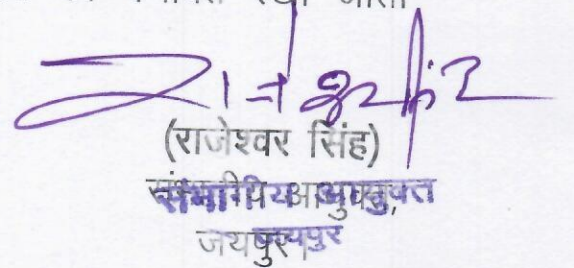 रखा जाता
(राजेश्वर सिंह)
संभागीय आयुक्त,
जयपुर।
संभागीय आयुक्त
जयपुर